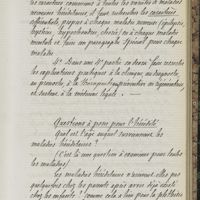 les caractères communs à toutes les variétés de maladies
nerveuses héréditaires, et faire rechercher les caractères
différentiels propres à chaque maladie nerveuse (épilepsie,
hystérie, hypochondrie, chorée) ou à chaque maladie
mentale et faire un paragraphe spécial pour chaque
maladie.
4° Dans une 4e partie on devra faire connaître
les applications pratiques à la clinique, au diagnostic,
au pronostic, à la thérapeutique préventive ou hygiénique,
et surtout à la médecine légale.
Questions à poser pour l'hérédité
Quel est l'âge auquel surviennent les
maladies héréditaires?
(C'est là une question à examiner pour toutes
les maladies).
Les maladies héréditaires n'arrivent elles pas
quelquefois chez les parents après avoir déjà existé
chez les enfants? comme cela a lieu pour la phthisie